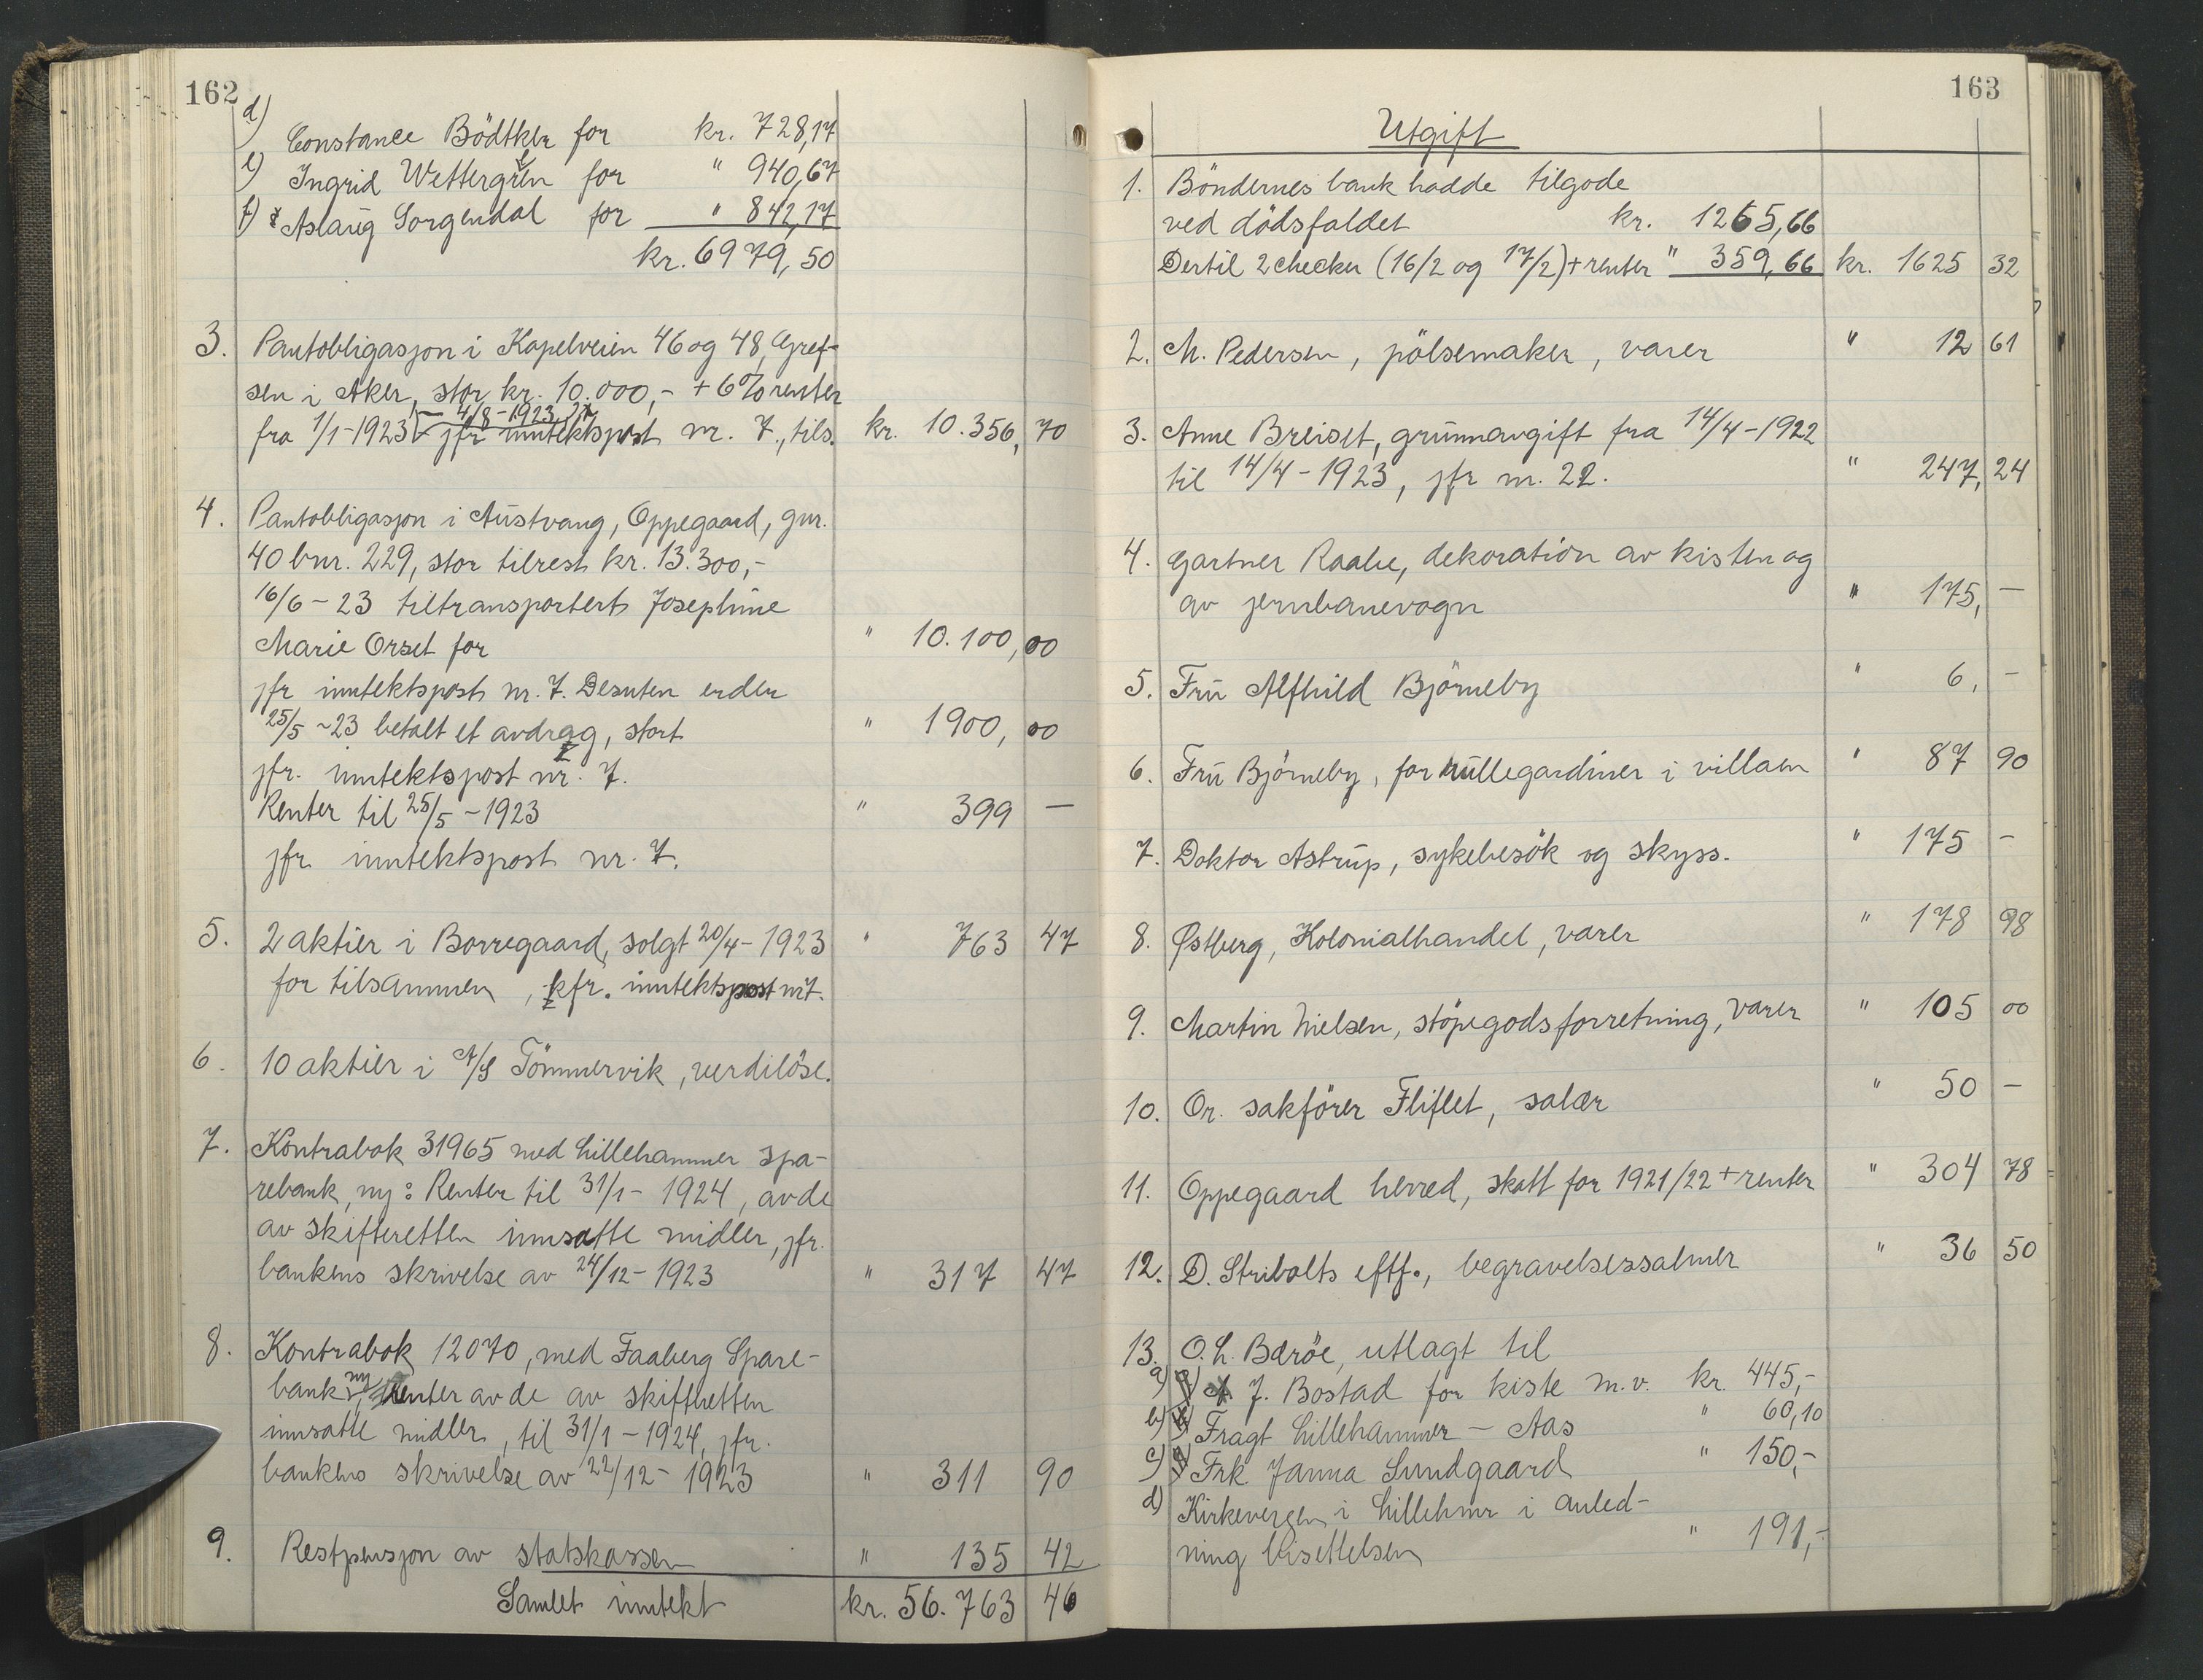 162
d) Constance Bödtker for kr. 728,17
e) Ingrid Wettergren for " 940,67
f) Aslaug Sorgendal for " 842,17
kr. 6979,50
3. Pantobligasjon i Kapelveien 46 og 48, Gref-
sen i Aker, stor kr. 10.000,- + 6% renter
fra 1/1-1923 - 4/8-1923
jfr inntektspost nr. 7., tils. kr. 10.356,70
4. Pantobligasjon i Austvang, Oppegaard, gnr.
40 bnr. 229, stor tilrest kr. 13.300,-
16/6-23 tiltransportert Josephine
Marie Orset for " 10.100,00
jfr inntektspost nr. 7. Desuten er der
25/5-23 betalt et avdrag, stort " 1900,00
jfr. inntektspost nr. 7.
Renter til 25/5-1923 " 399 —
jfr inntektspost nr. 7.
5. 2 aktier i Borregaard, solgt 20/4-1923 " 763 47
for tilsammen, kfr. inntektspost nr 7.
6. 10 aktier i A/S Tömmervik, verdilöse.
7. Kontrabok 31965 med Lillehammer spa-
rebank, ny: Renter til 31/1-1924, av de
av skifteretten innsatte midler, jfr.
bankens skrivelse av 24/12-1923 " 317 47
8. Kontrabok 12070, med Faaberg Spare-
bank, ny, renter av de av skifteretten
innsatte midler, til 31/1-1924, jfr.
bankens skrivelse av 22/12-1923 " 311 90
9. Restpensjon av statskassen " 135 42
Samlet inntekt kr. 56.763 46
163
Utgift
1. Böndernes bank hadde tilgode
ved dödsfaldet kr. 1265,66
Dertil 2 checker (16/2 og 17/2) + renter " 359,66 kr. 1625 32
2. M. Pedersen, pölsemaker, varer " 12 61
3. Anne Breiset, grunnavgift fra 14/4-1922
til 14/4-1923, jfr nr. 22. " 247,24
4. Gartner Raabe, dekoration av kisten og
av jernbanevogn " 175,—
5. Fru Alfhild Björneby " 6,-
6. Fru Björneby, for rullegardiner i villaen " 87 90
7. Doktor Astrup, sykebesök og skyss. " 175 -
8. Østberg, Kolonialhandel, varer " 178 98
9. Martin Nielsen, stöpegodsforretning, varer " 105 00
10. Or. sakförer Fliflet, salær " 50 —
11. Oppegaard herred, skatt for 1921/22 + renter " 304 78
12. D. Stribolts eftf., begravelsessalmer " 36 50
13. O. L. Bæröe, utlagt til
a) J. Bostad for kiste m.v. kr. 445,-
b) Fragt Lillehammer - Aas " 60,10
c) Frk Janna Lundgaard " 150,-
d) Kirkevergen i Lillehmr i anled-
ning bisettelsen " 191,-